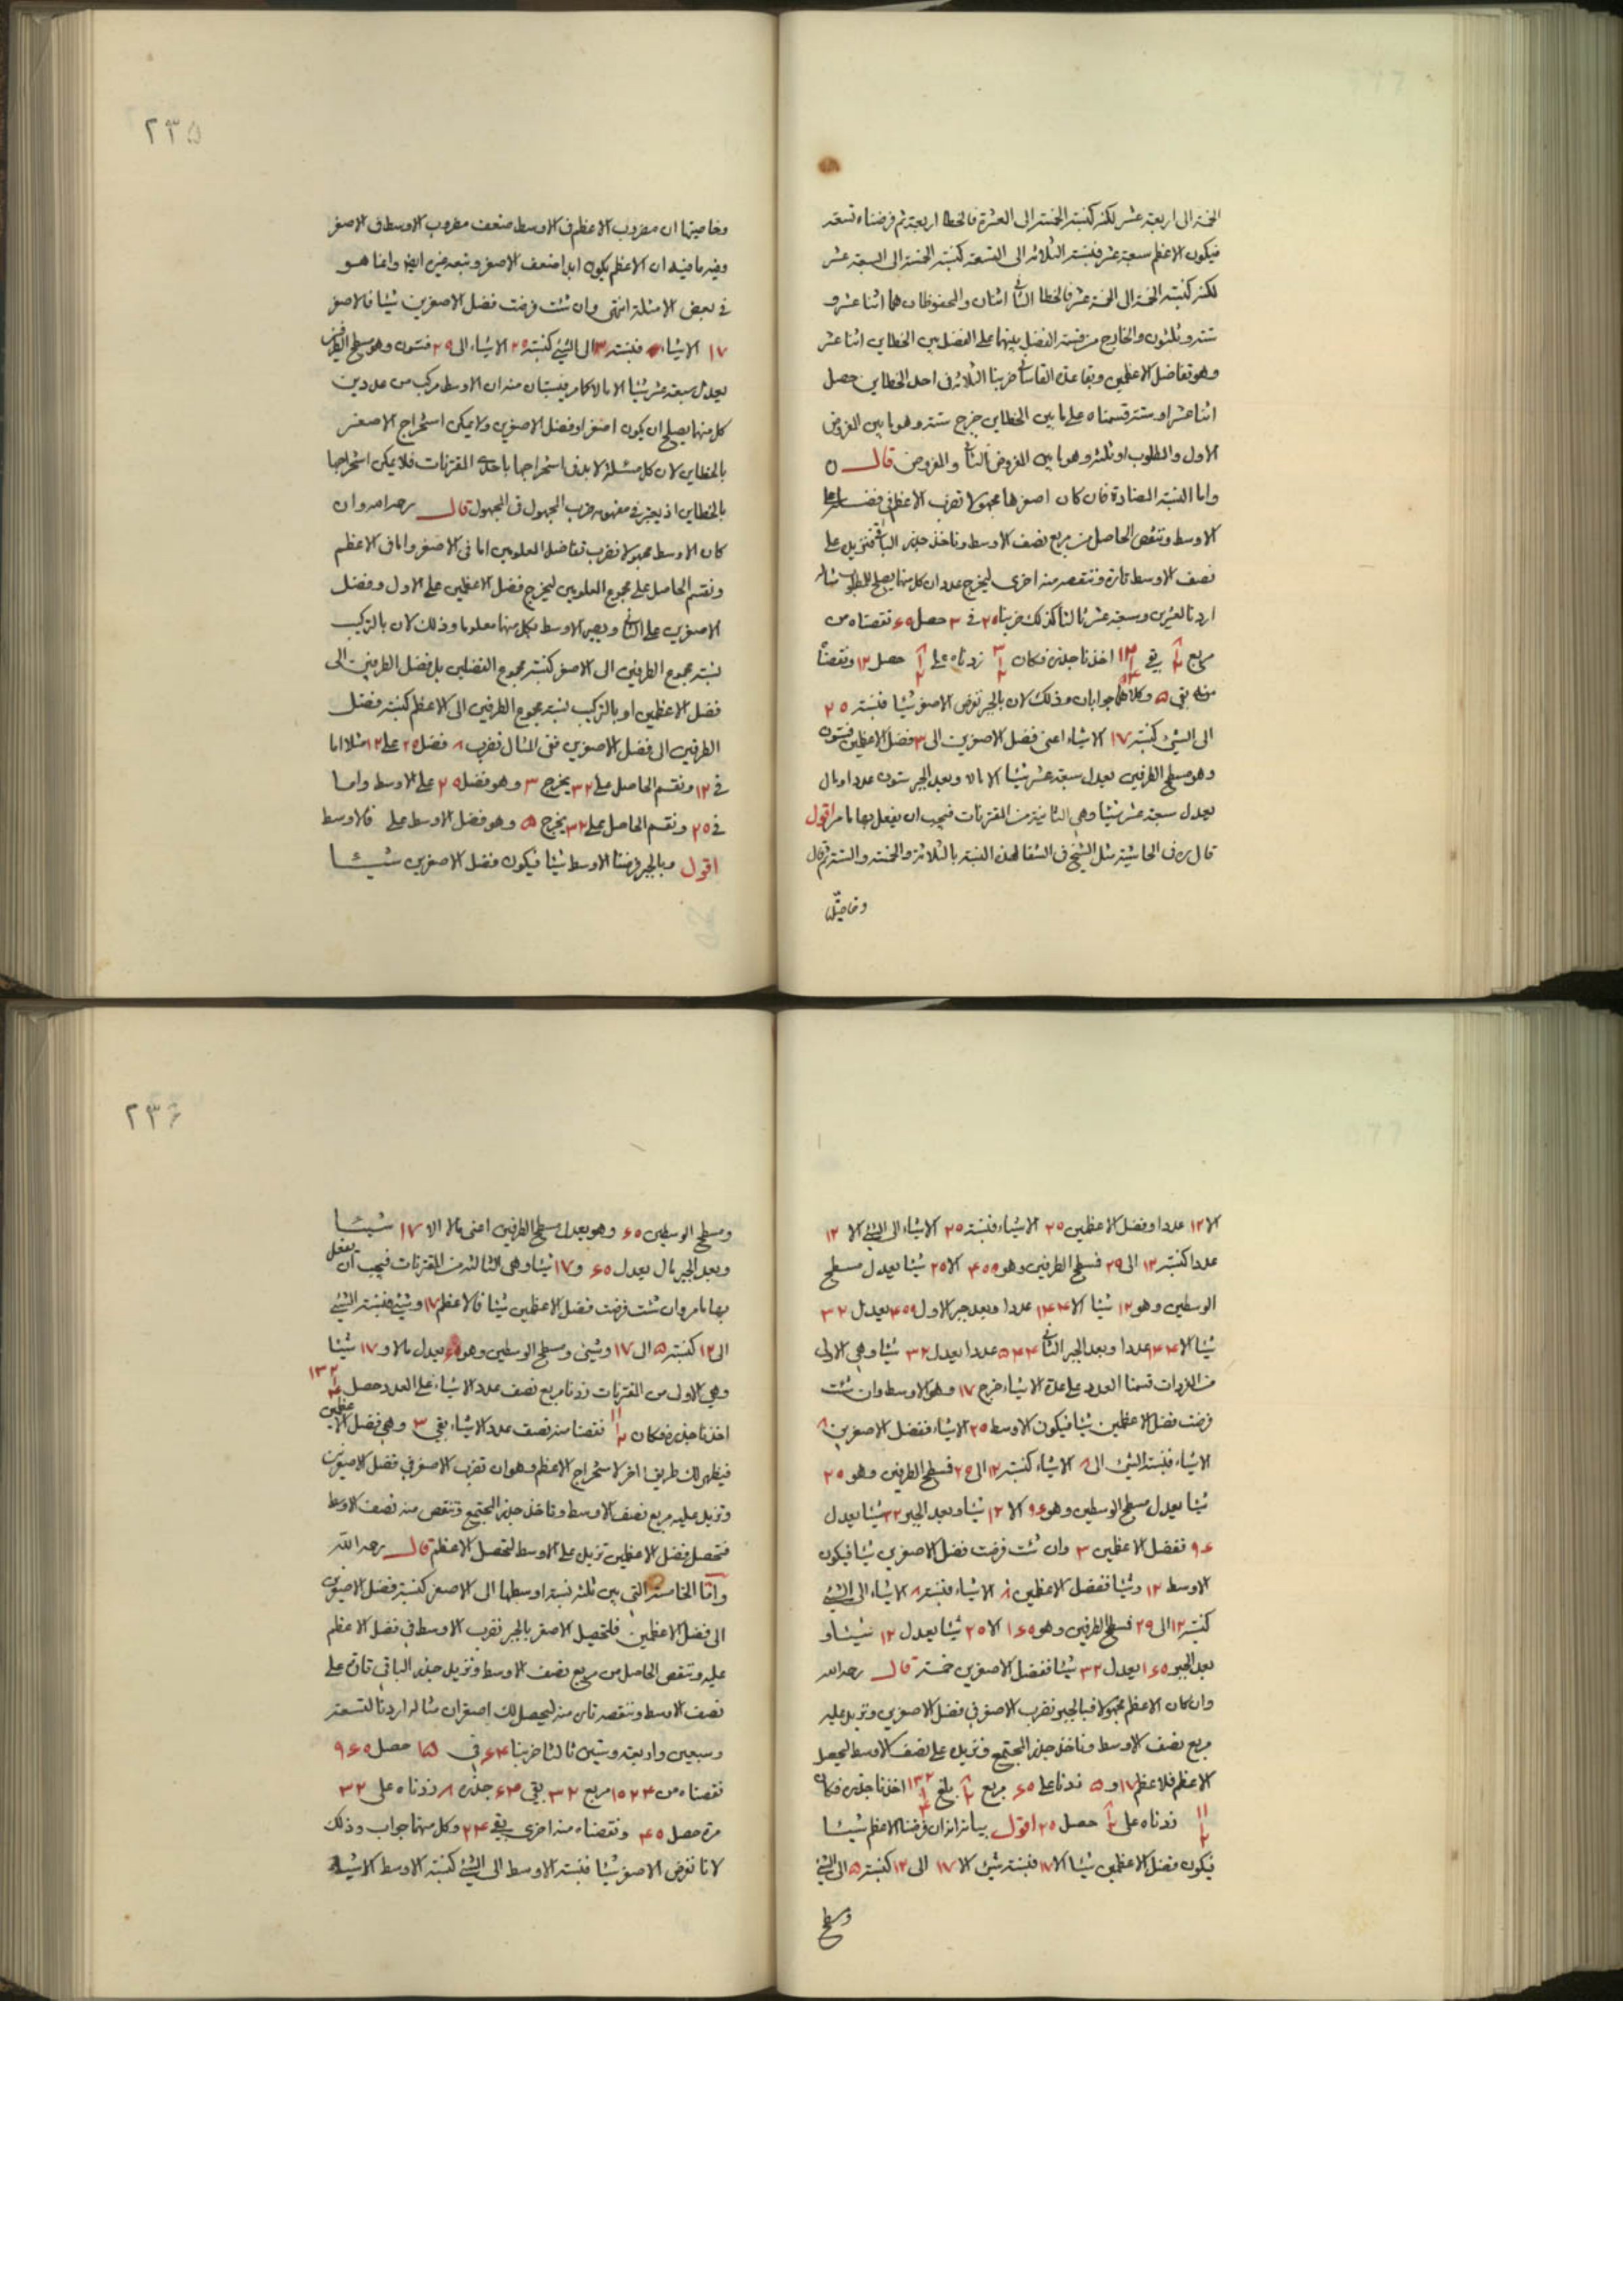 الخمسة الى اربعة عشر لكنه كنسبة الخمسة الى العشرة فالخطا اربعة ثم فرضناه تسعة
فيكون الاعظم سبعة عشر فنسبة الثلاثة الى التسعة كنسبة الخمسة الى السبعة عشر
لكنه كنسبة الخمسة الى الخمسة عشر فالخطا الثانى اثنان والمحفوظان هما اثنا عشر و
ستة وثلثون والخارج من قسمة الفضل بينهما على الفضل بين الخطاين اثنا عشر
وهو تفاضل الاعظمين وبقاعدة القاسانى ضربنا الثلاثة فى احد الخطاين حصل
اثنا عشر او ستة قسمناه على ما بين الخطاين خرج ستة وهو ما بين المفروض
الاول والمطلوب او ثلثة وهو ما بين المفروض الثانى والمفروض قال ں
واما النسبة المضادة فان كان اصغرها مجهولا نضرب الاعظم فى فضله على
الاوسط وننقص الحاصل من مربع نصف الاوسط وناخذ جذر الباقى فنزيد على
نصف الاوسط تارة وننقصه منه اخرى ليخرج عددان كل منهما يصلح للمطلوب مثاله
اردنا لعشرين وسبعة عشر ثالثا كذلك ضربنا ٢٠ فى ٣ حصل ٦٠ نقصناه من
مربع بقى اخذنا جذره فكان زدناه على حصل ١٢ ونقصناه
منه بقى ٥ وكلاهما جوابان وذلك لان بالجبر نفرض الاصغر شيئا فنسبة ٢٠
الى الشئ كنسبة ١٧ الا شياء اعنى فضل الاصغرين الى ٣ فضل الاعظمين فستون
وهو مسطح الطرفين يعدل سبعة عشر شيئا الا مالا وبعد الجبر ستون عددا ومال
يعدل سبعة عشر شيئا وهى الثانية من المقترنات فيجب ان يفعل بها ما مر اقول
قال ره فى الحاشية مثل الشيخ فى الشفا لهذه النسبة بالثلاثة والخمسة والستة ثم قال
وخاصيتها
وخاصيتها ان مضروب الاعظم فى الاوسط ضعف مضروب الاوسط فى الاصغر
وفيه ما فيه ان الاعظم يكون ابدا ضعف الاصغر وتبعه غيره ايضا وانما هو
فى بعض الامثلة انتهى وان شئت فرضت فضل الاصغرين شيئا فالاصغر
١٧ الا شياء فنسبة ٣ الى الشئ كنسبة ٢٠ الا شياء الى ٢٠ فستون وهو مسطح الطرفين
يعدل سبعة عشر شيئا الا مالا كما مر فيستبان منه ان الاوسط مركب من عددين
كل منهما يصلح ان يكون اصغر او فضل الاصغرين ولا يمكن استخراج الاصغر
بالخطاين لان كل مسئلة لا بد فى استخراجها باحدى المقترنات فلا يمكن استخراجها
بالخطاين اذ يعتبر فى مفهومه ضرب المجهول فى المجهول قال رحمه الله وان
كان الاوسط مجهولا نضرب تفاضل المعلومين اما فى الاصغر واما فى الاعظم
ونقسم الحاصل على مجموع المعلومين ليخرج فضل الاعظمين على الاول وفضل
الاصغرين على الثانى ويصير الاوسط بكل منهما معلوما وذلك لان بالتركيب
نسبة مجموع الطرفين الى الاصغر كنسبة مجموع الفضلين بل فضل الطرفين الى
فضل الاعظمين او بالتركيب نسبة مجموع الطرفين الى الاعظم كنسبة فضل
الطرفين الى فضل الاصغرين ففى المثال نضرب ٨ فضل ٢٠ على ١٢ مثلا اما
فى ١٢ ونقسم الحاصل على ٣٢ يخرج ٣ وهو فضل ٢٠ على الاوسط واما
فى ٢٠ ونقسم الحاصل على ٣٢ يخرج ٥ وهو فضل الاوسط على فالاوسط
اقول وبالجبر فرضنا الاوسط شيئا فيكون فضل الاصغرين شيئا
الا ١٢ عددا وفضل الاعظمين ٢٠ الا شياء فنسبة ٢٠ الا شياء الى الشئ الا ١٢
عددا كنسبة ١٢ الى ٢٠ فسطح الطرفين وهو ٤٠٠ الا ٢٠ شيئا يعدل مسطح
الوسطين وهو ١٢ شيئا الا ١٤٤ عددا وبعد جبر الاول ٤٠٠ يعدل ٣٢
شيئا الا ١٤٤ عددا وبعد الجبر الثانى ٥٤٤ عددا يعدل ٣٢ شيئا وهى الاولى
من المفردات قسمنا العدد على عدة الاشياء خرج ١٧ وهو الاوسط وان شئت
فرضت فضل الاعظمين شيئا فيكون الاوسط ٢٠ الا شياء ففضل الاصغرين ٨
الا شياء فنسبة الشئ الى ٨ الا شياء كنسبة ١٢ الى ٢٠ فسطح الطرفين وهو ٢٠
شيئا يعدل مسطح الوسطين وهو ٩٦ الا ١٢ شيئا وبعد الجبر ٣٢ شيئا يعدل
٩٦ ففضل الاعظمين ٣ وان شئت فرضت فضل الاصغرين شيئا فيكون
الاوسط ١٢ وشيئا ففضل الاعظمين ٨ الا شياء فنسبة ٨ الا شياء الى الشئ
كنسبة ١٢ الى ٢٠ فسطح الطرفين وهو ١٦٠ الا ٢٠ شيئا يعدل ١٢ شيئا و
بعد الجبر ١٦٠ يعدل ٣٢ شيئا ففضل الاصغرين خمسة قال رحمه الله
وان كان الاعظم مجهولا فبالجبر نضرب الاصغر فى فضل الاصغرين ونزيد عليه
مربع نصف الاوسط وناخذ جذر المجتمع ونزيده على نصف الاوسط ليحصل
الاعظم فلاعظم ١٧ و ٥ زدنا على ٦٠ مربع بلغ اخذنا جذره فكان
زدناه على حصل ٢٠ اقول بيانه انه ان فرضنا الاعظم شيئا
فيكون فضل الاعظمين شيئا الا ١٧ فنسبة شئ الا ١٧ الى ١٢ كنسبة ٥ الى الشئ
ومسطح
ومسطح الوسطين ٦٠ وهو يعدل مسطح الطرفين اعنى مالا الا ١٧ شيئا
وبعد الجبر مال يعدل ٦٠ و ١٧ شيئا وهى الثالثة من المقترنات فيجب ان يفعل
بها ما مر وان شئت فرضت فضل الاعظمين شيئا فالاعظم ١٧ وشئ فنسبة الشئ
الى ١٢ كنسبة ٥ الى ١٧ وشئ ومسطح الوسطين وهو ٦٠ يعدل مالا و ١٧ شيئا
وهى الاولى من المقترنات زدنا مربع نصف عدد الاشياء على العدد حصل
اخذنا جذره فكان نقصنا منه نصف عدد الاشياء بقى ٣ وهى فضل الاعظمين
فيظهر لك طريق اخر لاستخراج الاعظم وهو ان تضرب الاصغر فى فضل الاصغرين
وتزيد عليه مربع نصف الاوسط وتاخذ جذر المجتمع وتنقص منه نصف الاوسط
فتحصل فضل الاعظمين تزيد على الاوسط لتحصل الاعظم قال رحمه الله
واما الخامسة التى بين ثلثة نسبة اوسطها الى الاصغر كنسبة فضل الاصغرين
الى فضل الاعظمين فلتحصيل الاصغر بالجبر نضرب الاوسط فى فضل الاعظم
عليه وننقص الحاصل من مربع نصف الاوسط ونزيد جذر الباقى تارة على
نصف الاوسط وننقصه تارة منه ليحصل لك اصغران مثاله اردنا لتسعة
وسبعين واربعة وستين ثالثا ضربنا ٦٤ فى ١٥ حصل ٩٦٠
نقصناه من ١٠٢٤ مربع ٣٢ بقى ٦٤ جذره ٨ زدناه على ٣٢
مرة حصل ٤٠ ونقصناه منه اخرى بقى ٢٤ وكل منهما جواب وذلك
لانا نفرض الاصغر شيئا فنسبة الاوسط الى الشئ كنسبة الاوسط الا شياء
٢٣٥
٢٣٦